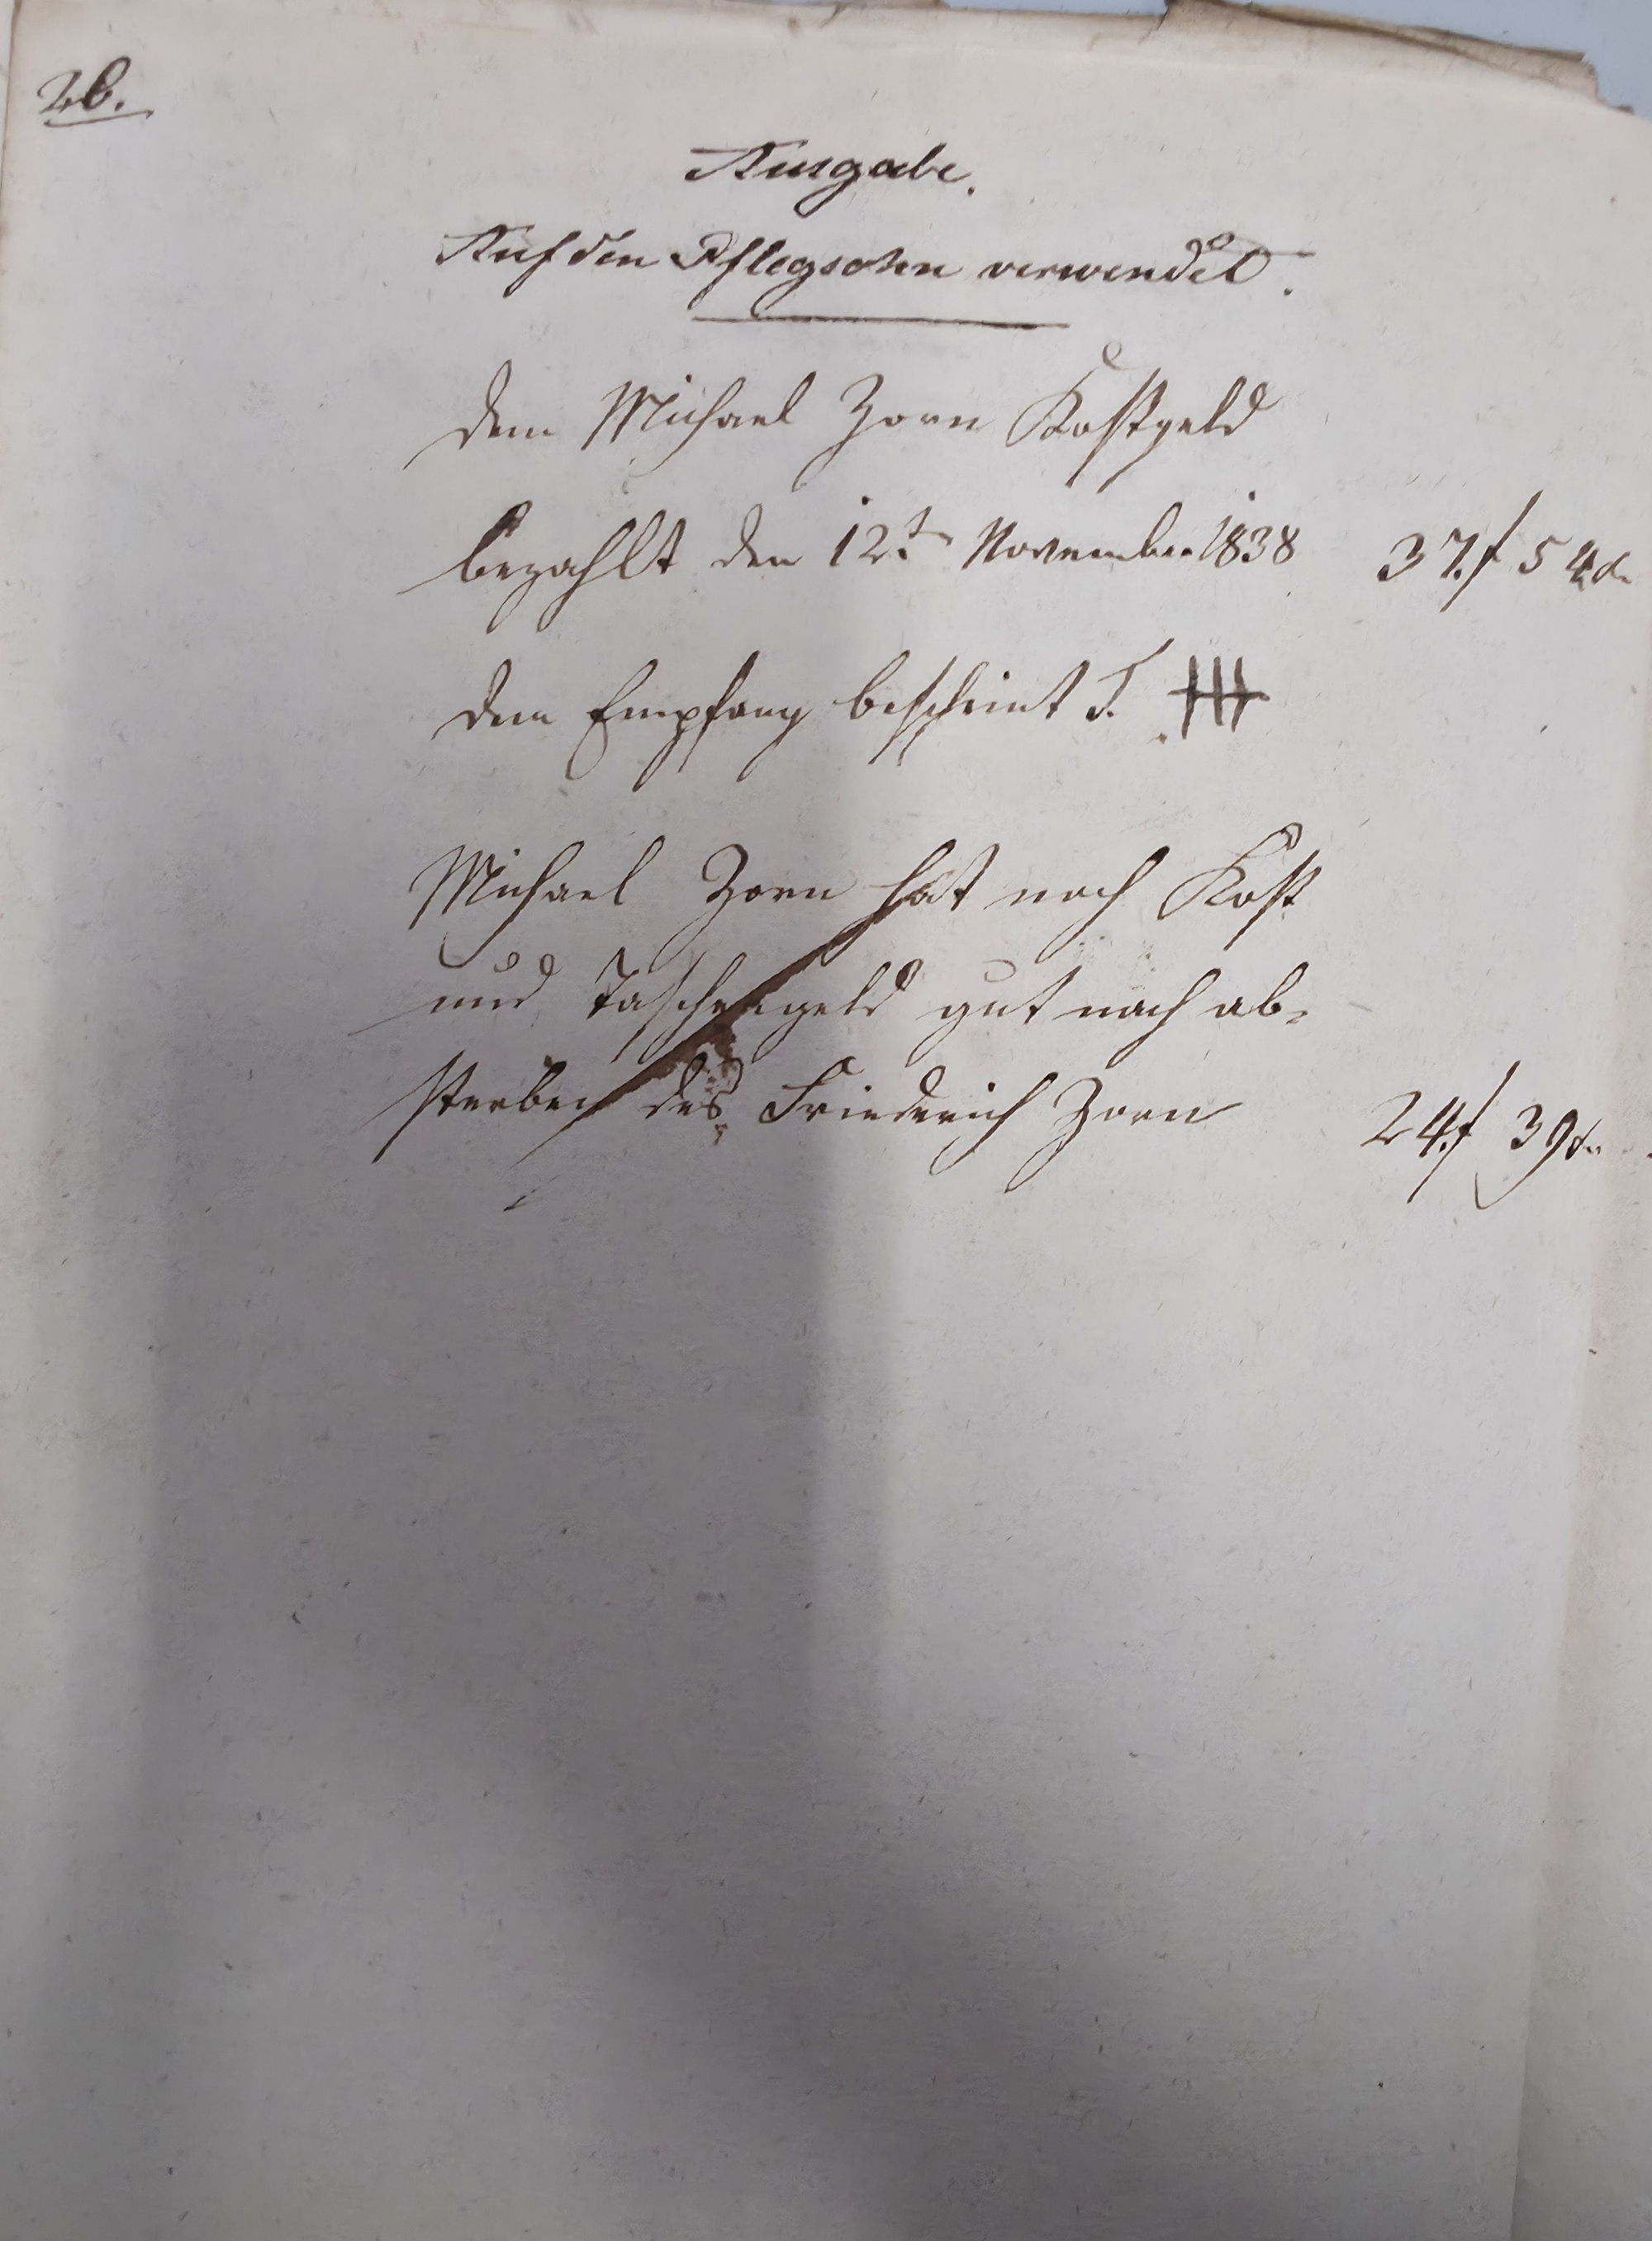 26.
Ausgabe.
Auf den Pflegsohn verwendet.
dem Michael Zorn Kostgeld
bezahlt den 12t November 1838 37.f 54 xr
den Empfang bescheint T. +++
Michael Zorn hat noch Kost
und Taschengeld gut nach ab-
sterben des Friederich Zorn 24.f 39 xr